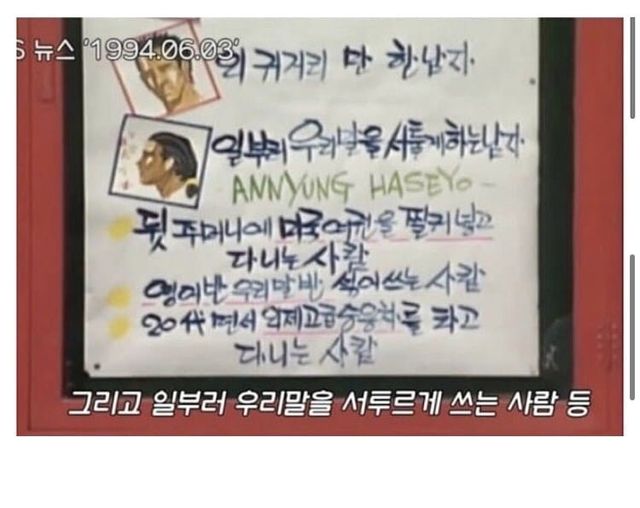 S 뉴스 '1994.06.03'
귀거리 만 한 남자.
일부러 우리말을 서툴게하는남자.
ANNYUNG HASEYO –
뒷 주머니에 미국여권을 찔러넣고
다니는 사람
영어반 우리말반 섞어쓰는 사람
20代면서 외제고급승용차를 타고
다니는 사람
그리고 일부러 우리말을 서투르게 쓰는 사람 등